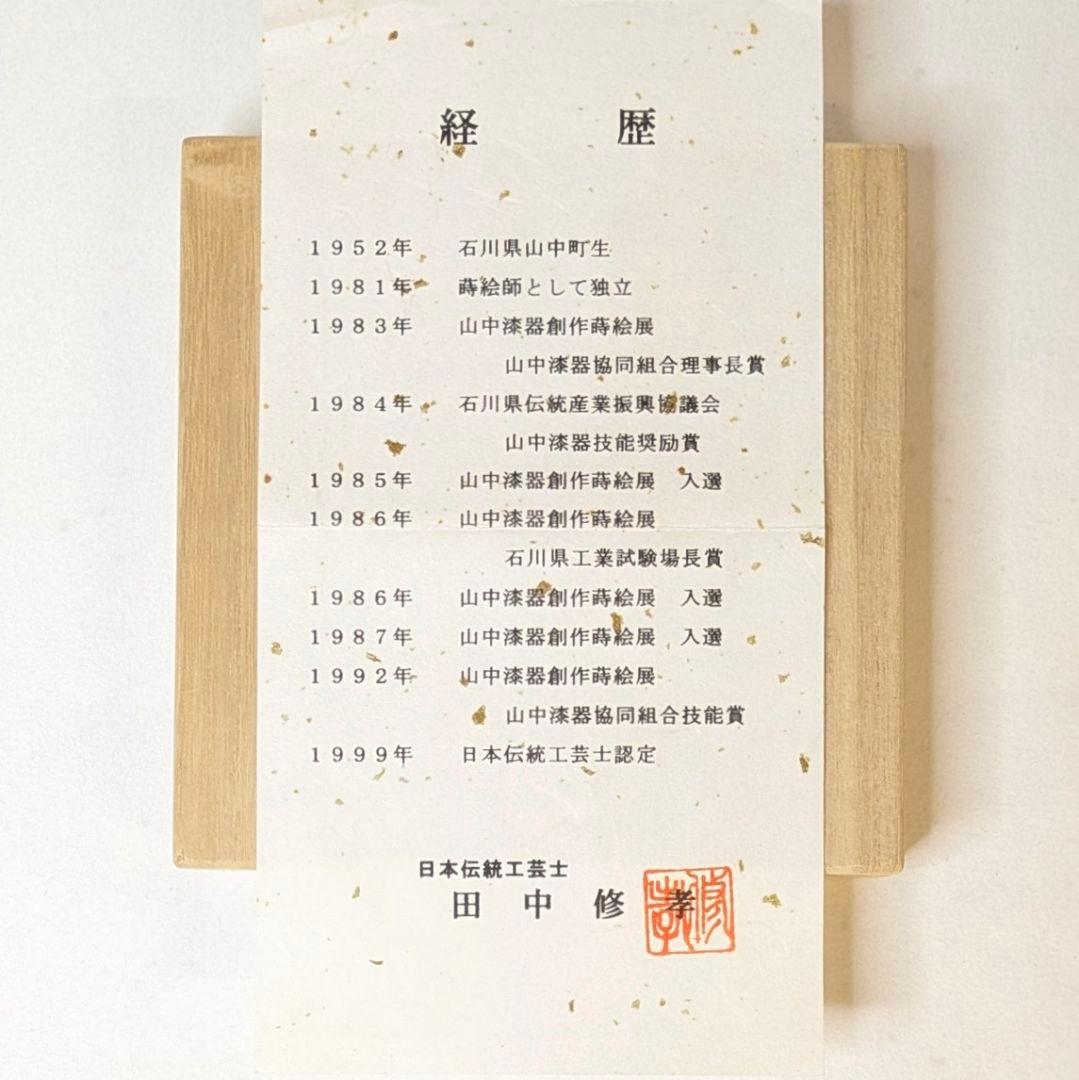 経 歴
1952年 石川県山中町生
1981年 蒔絵師として独立
1983年 山中漆器創作蒔絵展
山中漆器協同組合理事長賞
1984年 石川県伝統産業振興協議会
山中漆器技能奨励賞
1985年 山中漆器創作蒔絵展 入選
1986年 山中漆器創作蒔絵展
石川県工業試験場長賞
1986年 山中漆器創作蒔絵展 入選
1987年 山中漆器創作蒔絵展 入選
1992年 山中漆器創作蒔絵展
山中漆器協同組合技能賞
1999年 日本伝統工芸士認定
日本伝統工芸士
田中修孝
修孝